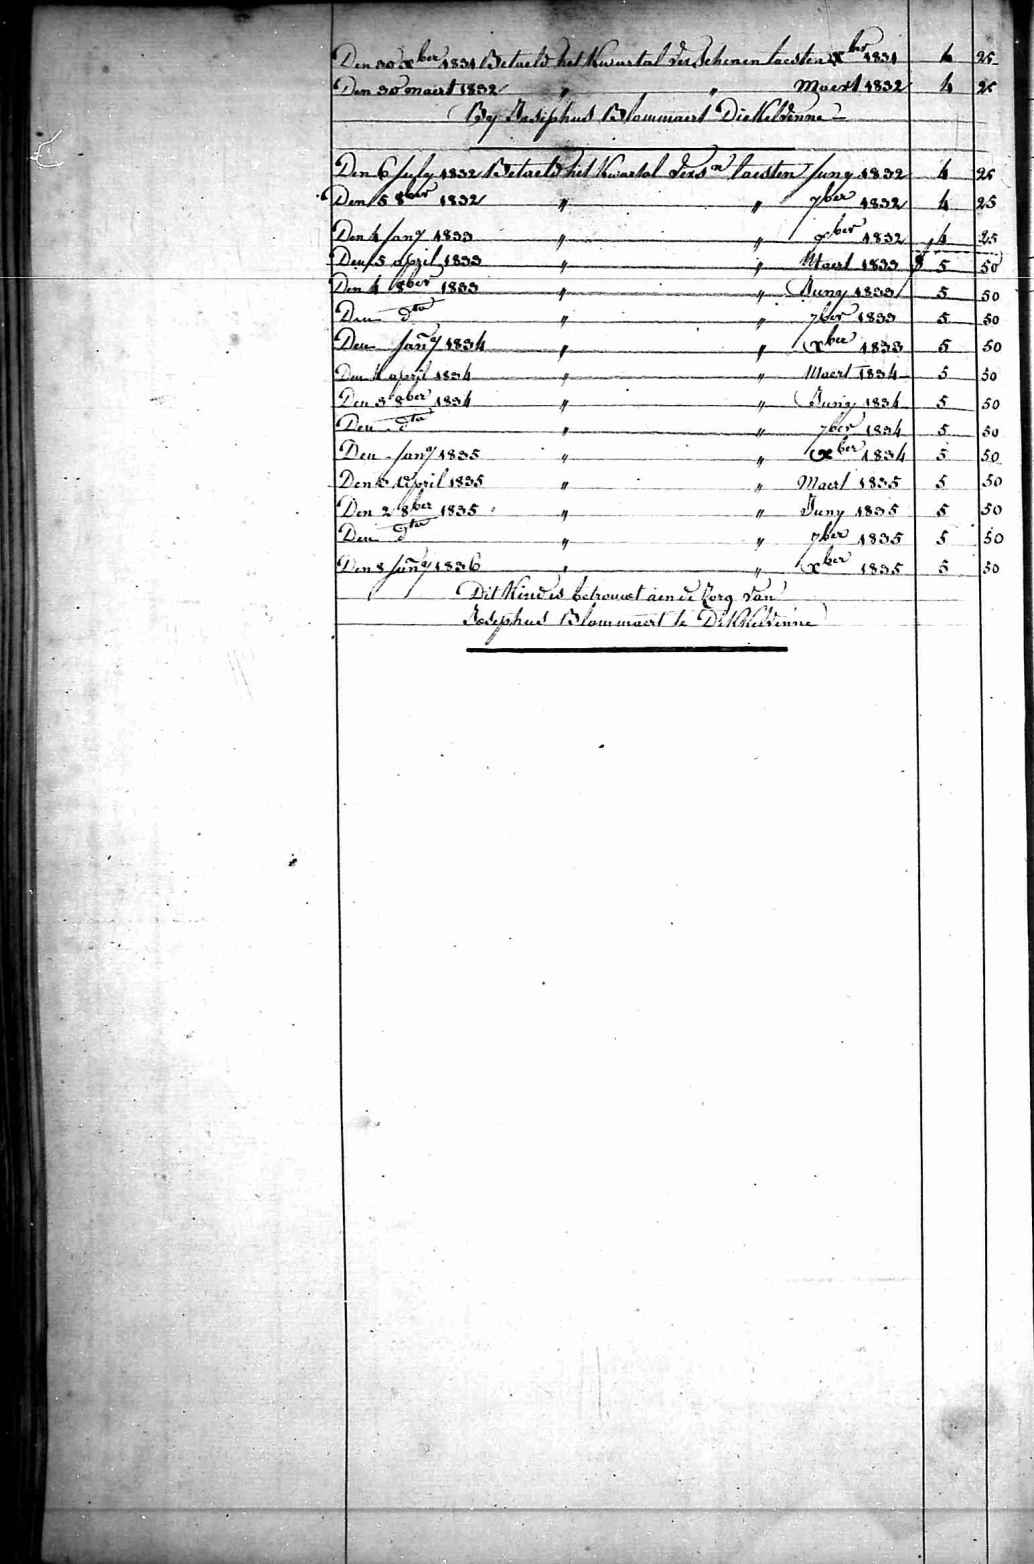 Den 30 xber 1831 Betaeld het Kwartal verschenen laesten xber 1831 4 25
Den 30 maert 1832 " " Maert 1832 4 25
By Josephus Blommaert Dickelvenne
Den 6 July 1832 Betaeld het Kwartal versn laesten Juny 1832 4 25
Den 5 8ber 1832 " " 7ber 1832 4 25
Den 4 Jany 1833 " " xber 1832 4 25
Den 5 april 1833 " " Maert 1833 5 50
Den 4 8ber 1833 " " Juny 1833 5 50
Den dto " " 7ber 1833 5 50
Den Jany 1834 " " xber 1833 5 50
Den 4 april 1834 " " Maert 1834 5 50
Den 3 8ber 1834 " " Juny 1834 5 50
Den dto " " 7ber 1834 5 50
Den Jany 1835 " " xber 1834 5 50
Den 3 April 1835 " " Maert 1835 5 50
Den 2 8ber 1835 " " Juny 1835 5 50
Den dto " " 7ber 1835 5 50
Den 8 Jany 1836 " " xber 1835 5 50
Dit Kind is betrouwt aen de Zorg van
Josephus Blommaert te Dikkelvenne